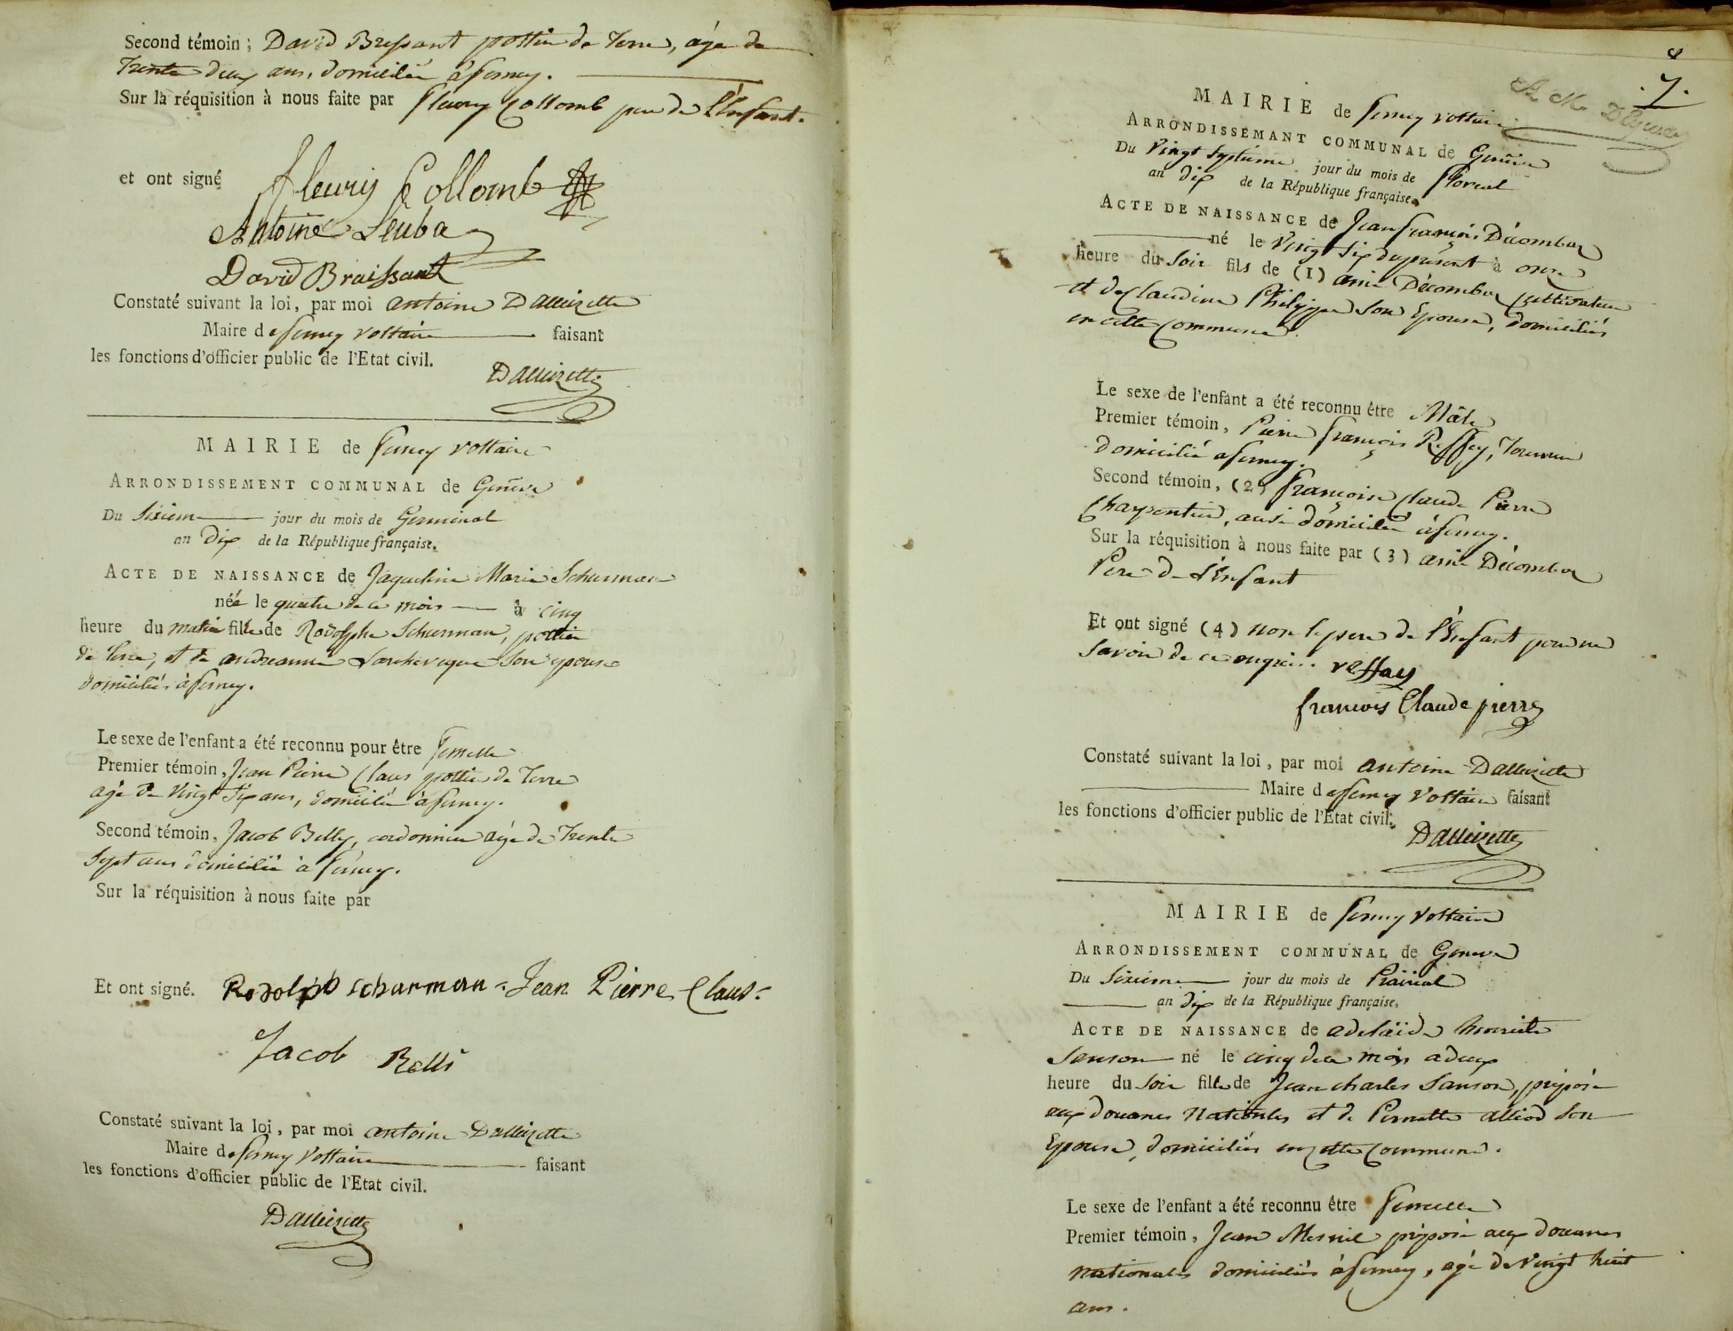 Second témoin ; David Bressant pottier de Terre, âgé de
Trente deux ans, domicilié à ferney.
Sur la réquisition à nous faite par fleury Collomb pere de l'Enfant.
et ont signé fleurij Collomb
Antoine Leuba
David Braissant
Constaté suivant la loi, par moi antoine Dallizette
Maire de ferney voltaire faisant
les fonctions d'officier public de l'Etat civil.
Dallizette
MAIRIE de ferney voltaire
ARRONDISSEMENT COMMUNAL de Genève
Du Sixieme jour du mois de Germinal
an Dix de la République française.
ACTE DE NAISSANCE de Jaqueline Marie Schurman
née le quatre de ce mois à cinq
heure du matin fille de Rodolphe Schurman, pottier
de terre, et de andreanne Larcheveque son epouse
domiciliés à ferney.
Le sexe de l'enfant a été reconnu pour être femelle
Premier témoin, Jean Pierre Claus pottier de Terre
agé de Vingt Six ans, domicilié à ferney.
Second témoin, Jacob Belly, cordonnier agé de Trente
Sept ans domicilié à ferney.
Sur la réquisition à nous faite par
Et ont signé. Rodolph scharman = Jean Pierre Claus =
Jacob Belli
Constaté suivant la loi, par moi antoine Dallizette
Maire de ferney Voltaire faisant
les fonctions d'officier public de l'Etat civil.
Dallizette
8
.7.
MAIRIE de ferney voltaire
ARRONDISSEMANT COMMUNAL de Genève
Du Vingt Septieme jour du mois de floreal
an dix de la République française.
ACTE DE NAISSANCE de Jean francois Décombax
né le Vingt Six du present à onze
heure du Soir fils de (1) amé Décombax Cultivateur
et de Claudine Philippe Son Epouse, domiciliés
en cette Commune.
Le sexe de l'enfant a été reconnu être Mâle
Premier témoin, Pierre françois Reffey, Tourneur
domicilié à ferney.
Second témoin, (2) françois Claude Pierre
Charpentier, aussi domicilié à ferney.
Sur la réquisition à nous faite par (3) amé Décombax
Pere de l'Enfant
Et ont signé (4) non le pere de l'Enfant pour ne
savoir de ce enquis. reffay
francois Claude pierre
Constaté suivant la loi, par moi antoine Dallizette
Maire de ferney Voltaire faisant
les fonctions d'officier public de l'Etat civil.
Dallizette
MAIRIE de ferney Voltaire
ARRONDISSEMENT COMMUNAL de Geneve
Du Sixieme jour du mois de Prairial
an dix de la République française.
ACTE DE NAISSANCE de adelaïde henriette
Sanson né le cinq de ce mois a deux
heure du Soir fille de Jean charles Sanson, préposé
aux douanes nationales et de Pernette alliod son
Epouse, domiciliés en cette Commune.
Le sexe de l'enfant a été reconnu être femelle
Premier témoin, Jean Mesnil préposé aux douanes
nationales domicilié à ferney, agé de Vingt huit
ans.